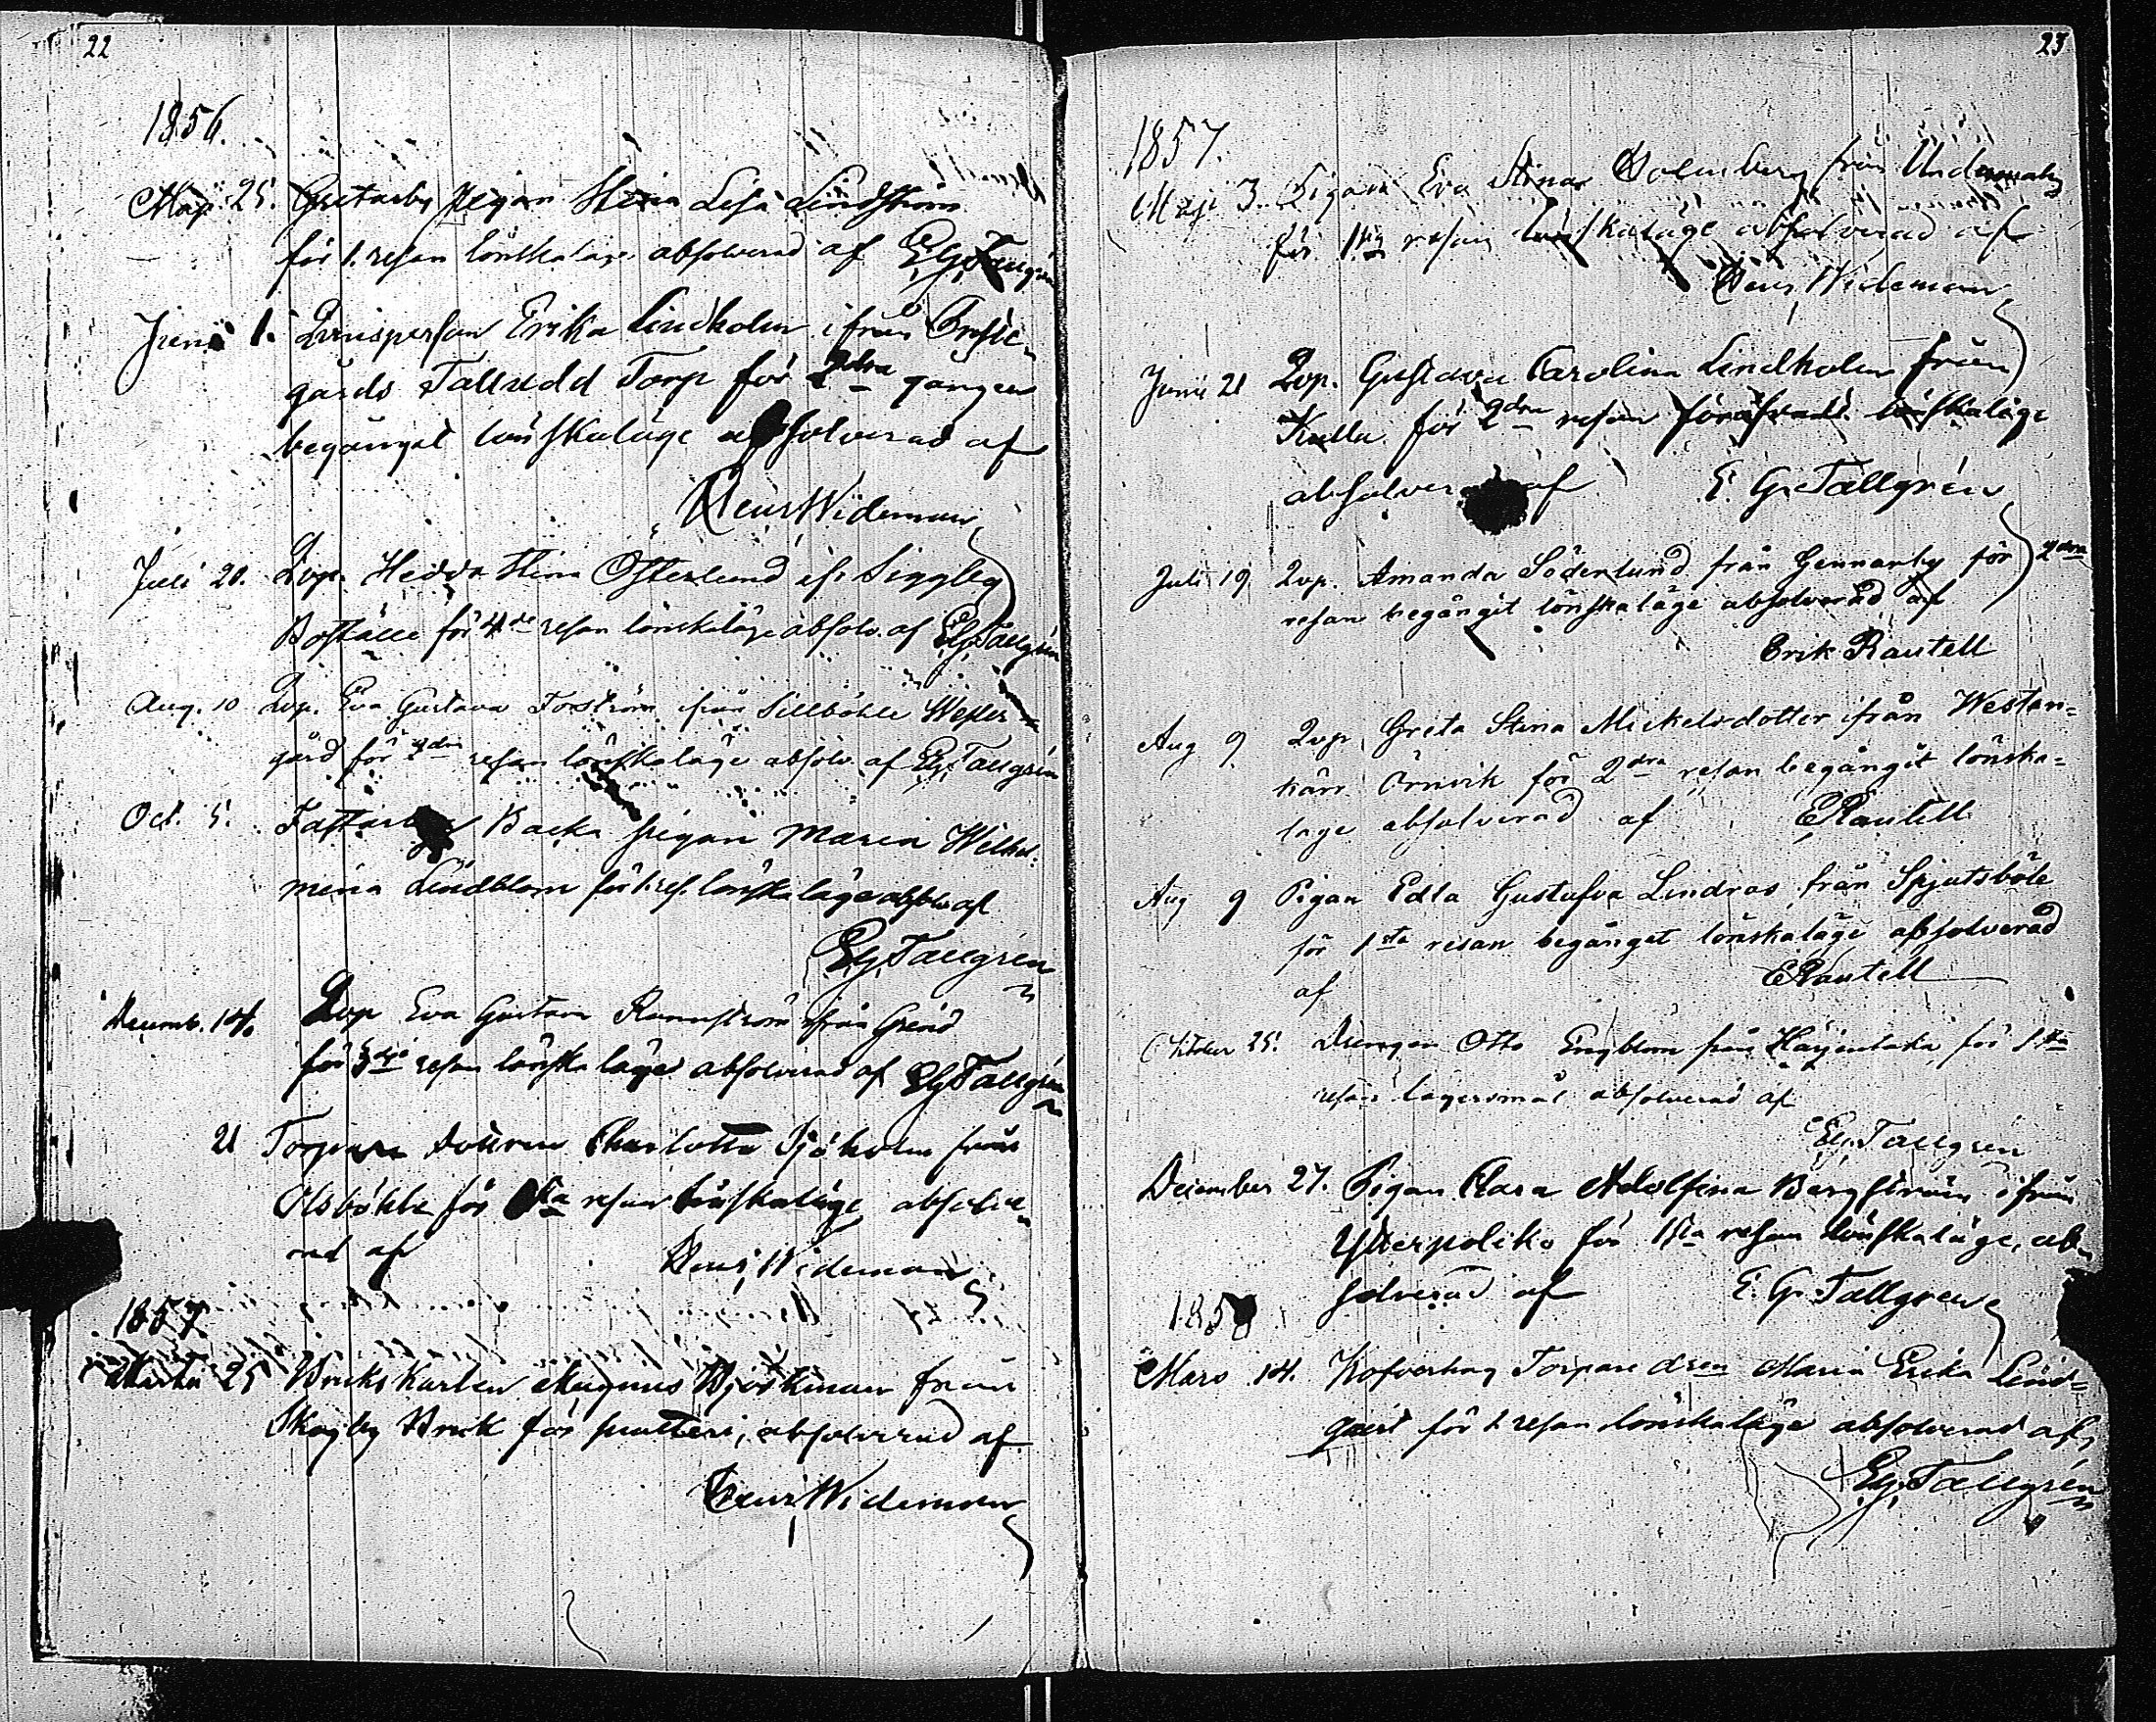 22
1856.
Maji 25. Gretarby pigan Stina Lisa Lindström
för 1. resan lönskaläge absolverad af EGTallgrén
Junii 1. Qvinsperson Erika Lindholm ifrån
gårds Talludd Torp för 2dra gången
begånget lönskaläge absolverad af
Henr Wideman
Juli 20. Qvp. Hedda Stina Österlund ifr Siggby
Boställe för 4de resan lönskaläge absolv. af EGTallgrén
Aug. 10 Qvp. Eva Gustava Forström ifrån Sillböhle Wester
gård för 2dra resan lönskaläge absolv. af EGTallgrén
Oct. 5. Backa pigan Maria Wilhel-
mina Lindblom för 1. res. lönskaläge absolv af
EGTallgrén
Decemb. 14 Qvp Eva Gustava Runnström ifrån
för 3dje resan lönska läge absolverad af EGTallgrén
21 Torpare dottren Charlotta Sjöholm från
Olsböhle för 1sta resan lönskaläge absolve-
rad af Henr Wideman
1857
25 Bruks Karlen Magnus Björkman från
Skogby Bruk för snatteri, absolverad af
Henr Wideman
23
1857.
Maji 3. Pigan Eva Stina Holmberg från
för 1sta resan lönskaläge absolverad af
Henr Wideman
Junii 21 Qvp. Gustava Carolina Lindholm från
Kulla för 2dra resan föröfvadt lönskaläge
absolverad af E. G. Tallgrén
Juli 19 Qvp. Amanda Söderlund från Gennarby för 2dra
resan begångit lönskaläge absolverad af
Erik Rautell
Aug 9 Qvp. Greta Stina Mickelsdotter ifrån Westan=
kärr Örnvik för 2dra resan begångit lönska=
läge absolverad af ERautell
Aug 9 Pigan Edla Gustafva Lindros från Spjutsböle
för 1sta resan begånget lönskaläge absolverad
af ERautell
October 25. Drengen Otto Engblom från för 1sta
resans lägersmål absolverad af
EGTallgrén
December 27. Pigan Clara Adolfina Bergström ifrån
för 1sta resan lönskaläge, ab-
solverad af E. G. Tallgrén
1858
Mars 14. Torpare dren Maria Erika Lind=
qvist för 1 resan lönskaläge absolverad af
EGTallgrén